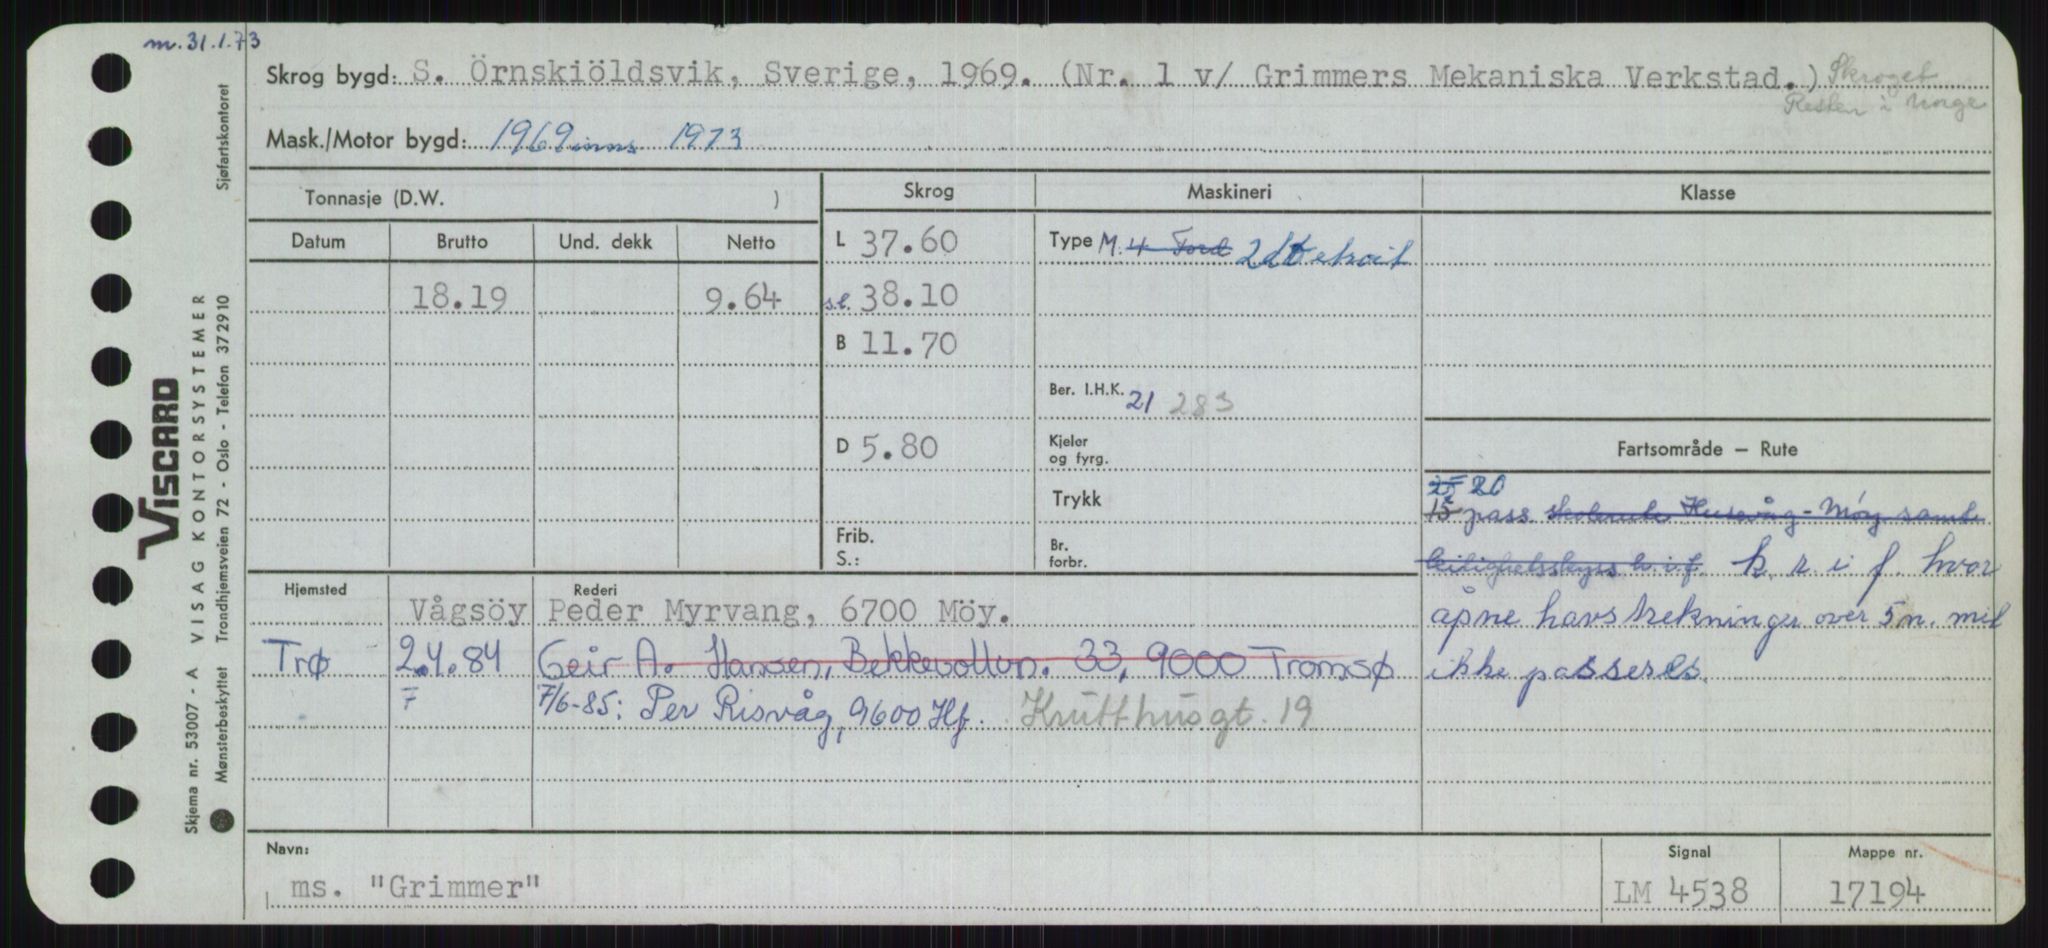 m. 31.1.73
Skrog bygd: S. Örnskiöldsvik, Sverige, 1969. (Nr. 1 v/ Grimmers Mekaniska Verkstad.) Skroget
Resten i Norge
Mask./Motor bygd: 1969 inns 1973
Tonnasje (D.W. )
Skrog
Maskineri
Klasse
Datum Brutto Und. dekk Netto
L 37.60
Type M. 4 Ford 2 Detroit
18.19 9.64
s.l. 38.10
B 11.70
Ber. I.H.K. 21 283
D 5.80
Kjeler
og fyrg.
Trykk
Frib.
S.:
Br.
forbr.
Fartsområde — Rute
25 20
15 pass. skolerute Husevåg - Möy samt
leilighetsskyss k. r. i f. hvor
åpne havstrekninger over 5 n. mil
ikke passeres.
Hjemsted Rederi
Vågsöy Peder Myrvang, 6700 Möy.
Trø 2.4.84 Geir A. Hansen, Bekkevollvn. 33, 9000 Tromsø
F 7/6-85: Per Risvåg, 9600 Hf. Krutthusgt. 19
Navn: Signal Mappe nr.
ms. "Grimmer" LM 4538 17194
VISCARD
VISAG KONTORSYSTEMER Sjøfartskontoret
Skjema nr. 53007 - A
Mønsterbeskyttet Trondhjemsveien 72 - Oslo - Telefon 37 29 10